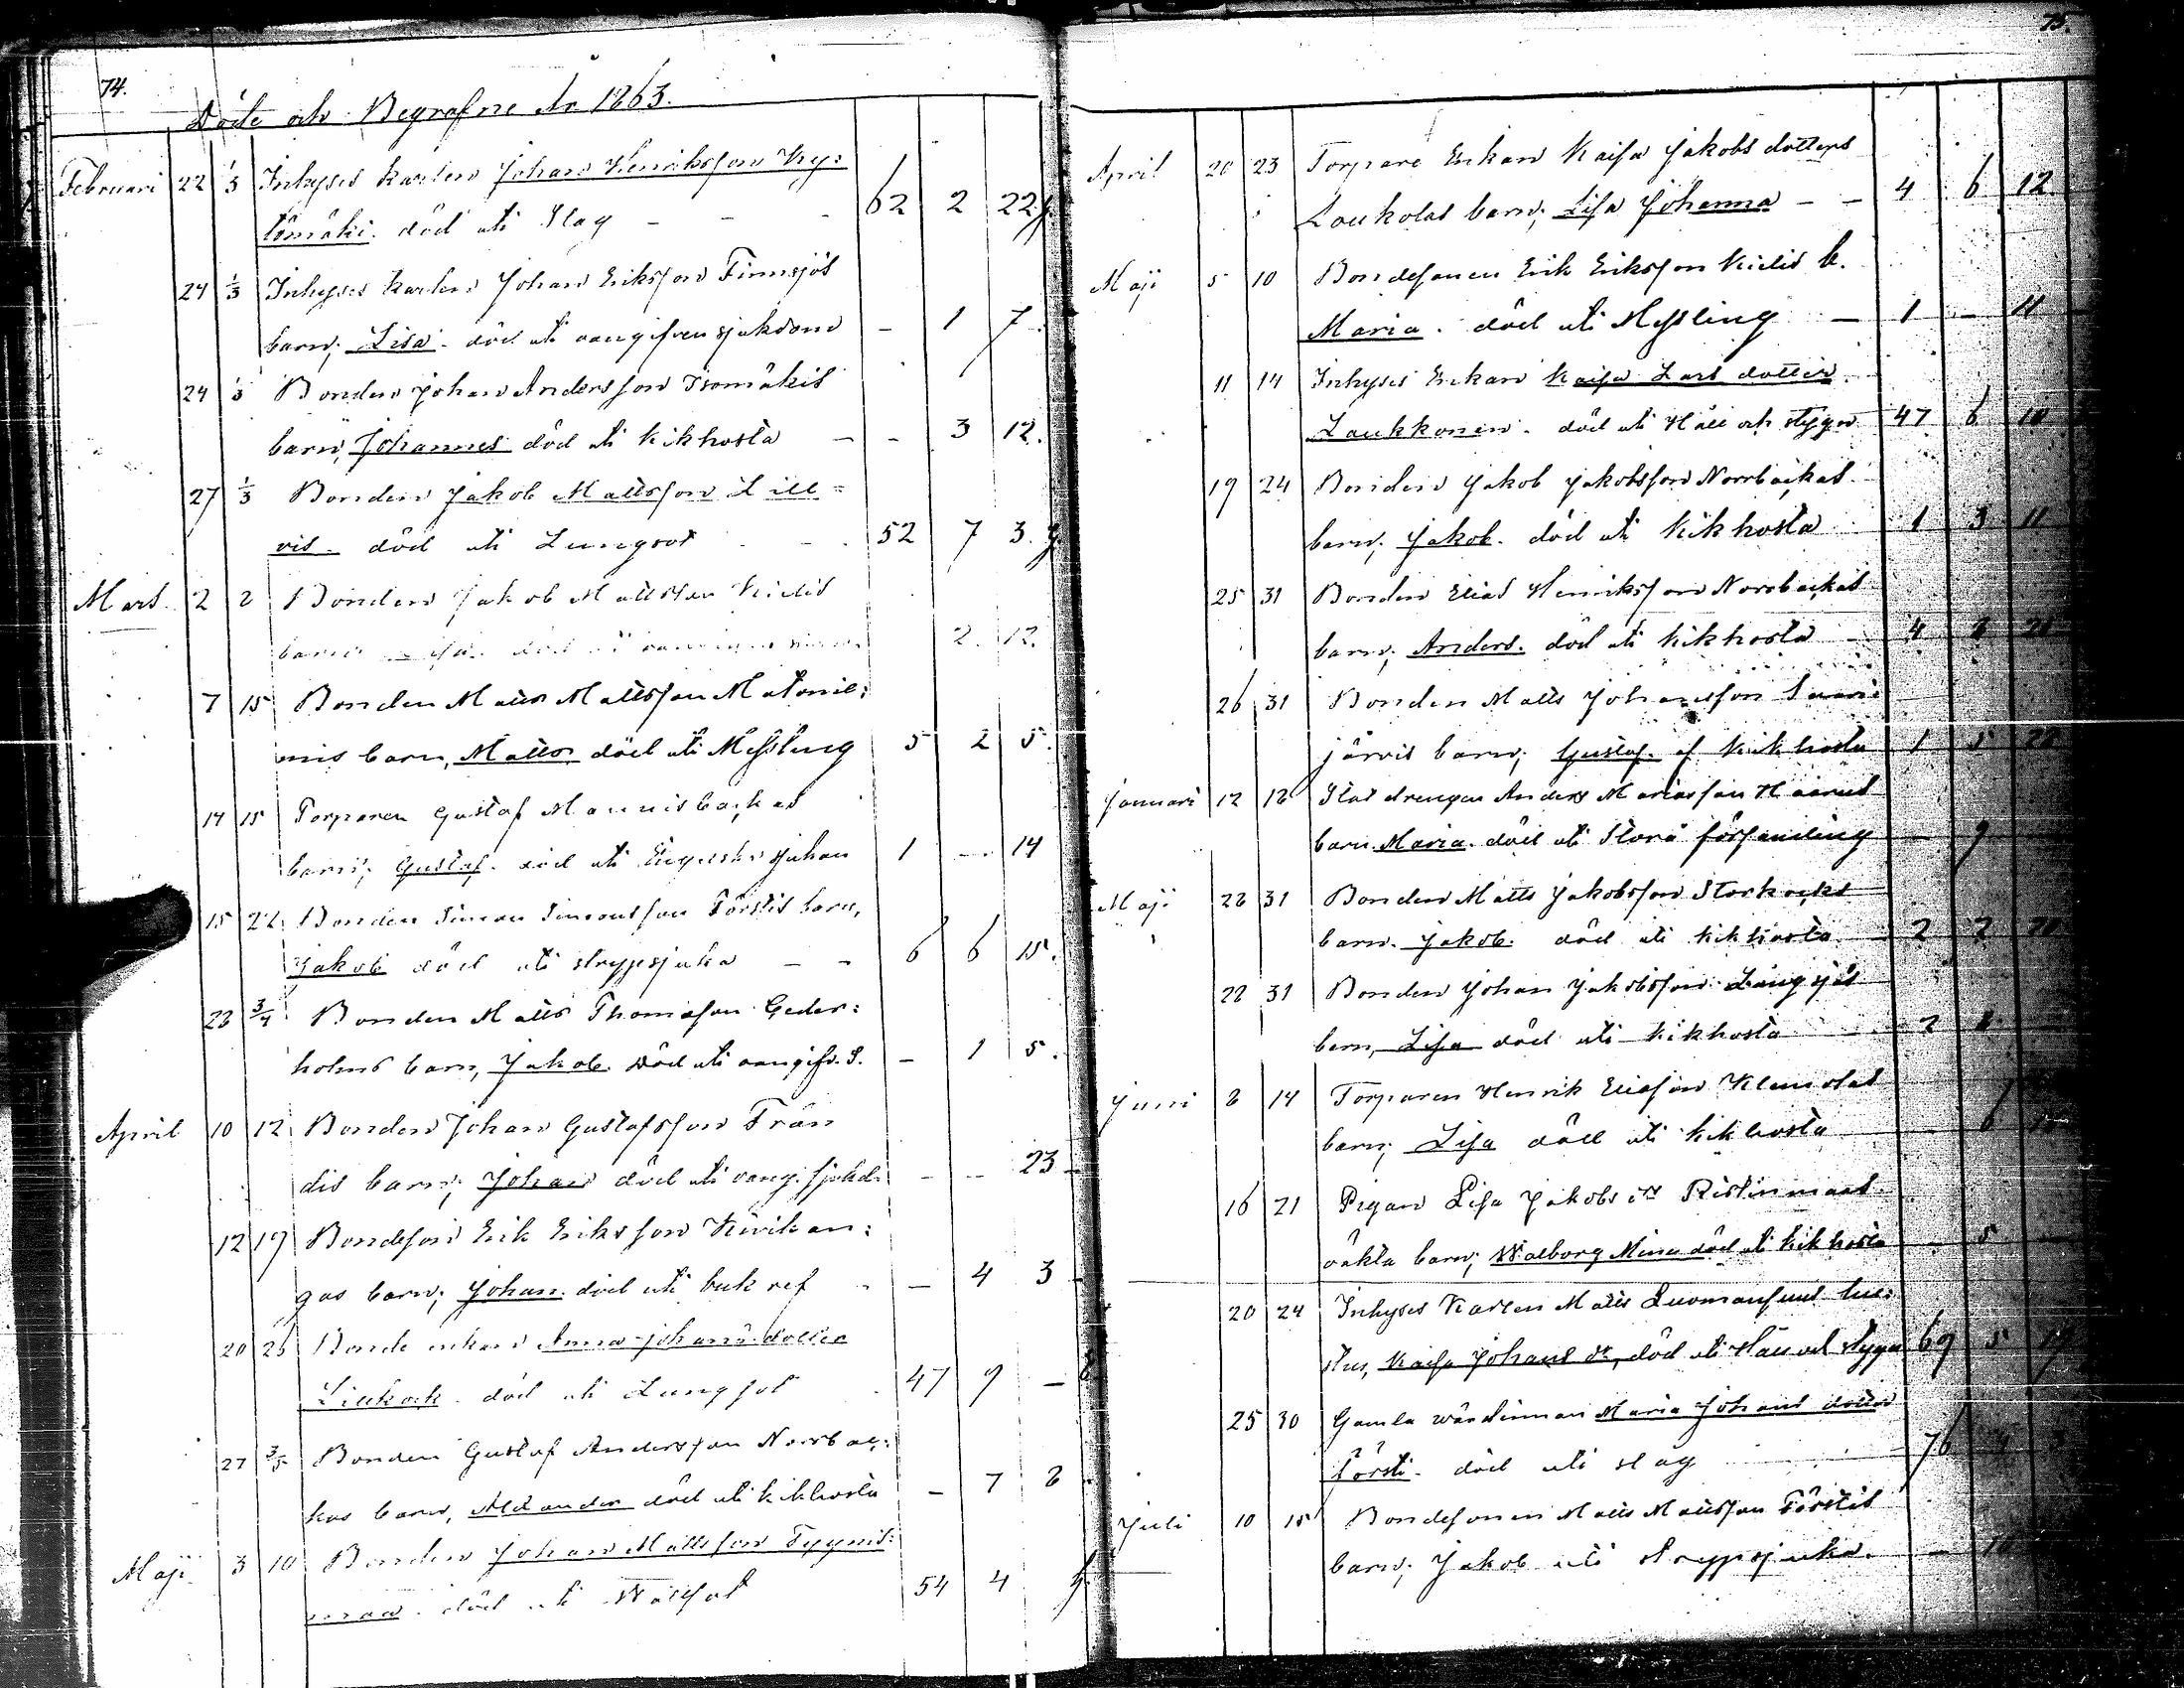 74.
Döde och Begrafne År 1863.
Februari 22 1/3 Inhyses karlen Johan Henriksson Ky=
tömäki. död uti Slag - - - 62 2 22
24 1/3 Inhyses karlen Johan Eriksson Finnsjös
barn, Lisa. död uti oangifven sjukdom - 1 7.
24 1/3 Bonden Johan Andersson Isomäkis
barn, Johannes död uti kikhosta - - 3 12.
27 1/3 Bonden Jakob Mattsson Lill=
vis. död uti Lungsot - - 52 7 3.
Mars 2 2 Bonden Jakob Mattsson
barn död 2. 12.
7 15 Bonden Matts Mattsson Matonie=
mis barn, Matts död uti Messling 5 2 5.
14 15 Torparen Gustaf Mannisbackas
barn, Gustaf. död uti Engelska sjukan 1 - 14
15 22 Bonden Simon Simonsson Förstis barn,
Jakob död uti strypsjuka - - 6 6 15.
28 3/4 Bonden Matts Thomasson Ceder=
holms barn, Jakob. död uti oangifv. S. - 1 5.
April 10 12 Bonden Johan Gustafsson Trän
dis barn, Johan död uti oang. sjukd. - - 23 -
12 19 Bondeson Erik Eriksson Kivikan=
gas barn, Johan. död uti bukref - - 4 3 -
20 26 Bonde enkan Anna Johans dotter
Lillkock. död uti Lungsot 47 9 -
27 3/5 Bonden Gustaf Andersson Norrbac=
kas barn, Alexander död uti kikhosta - 7 8
Maji 3 10 Bonden Johan Mattsson Tyynis=
maa. död uti Wattsot 54 4
75.
April 20 23 Torpare Enkan Kaisa Jakobs dotters
Laukolas barn, Lisa Johanna - - 4 6 12
Maji 5 10 Bondesonen Erik Eriksson b.
Maria. död uti Messling - 1 - 11
11 14 Inhyses Enkan Kaisa Lars dotter
Laukkonen. död uti Håll och stygn 47 6 18
19 24 Bonden Jakob Jakobsson Norrbackas
barn, Jakob. död uti Kikhosta 1 3 11
25 31 Bonden Elias Henriksson Norrbackas
barn, Anders. död uti kikhosta 4
26 31 Bonden Matts Johansson Saari=
järvis barn, Gustaf. af kikhosta 1 5 22
Januari 12 18 Statdrengen Anders
barn Maria. död uti Slora 9
Maji 28 31 Bonden Matts Jakobsson Storkocks
barn. Jakob. död uti kikhosta 2 2
28 31 Bonden Johan Jakobsson Långsjös
barn, Lisa död uti kikhosta 2
Juni 8 14 Torparen Henrik Eliasson Klemolas
barn, Lisa död uti kikhosta 6
16 21 Pigan Lisa Jakobs dr Ristinmaas
oäkta barn, Walborg Mina död uti kikhosta - 5
20 24 Inhyses Karlen Matts Luomansuus hu=
stru, Kaisa Johans dr, död uti Håll och stygn 69 5 19
25 30 Gamla wärdinnan Maria Johans dotter
Försti. död uti slag 76
Juli 10 15 Bondesonen Matts Mattsson Förstis
barn, Jakob uti strypsjuka. - 10